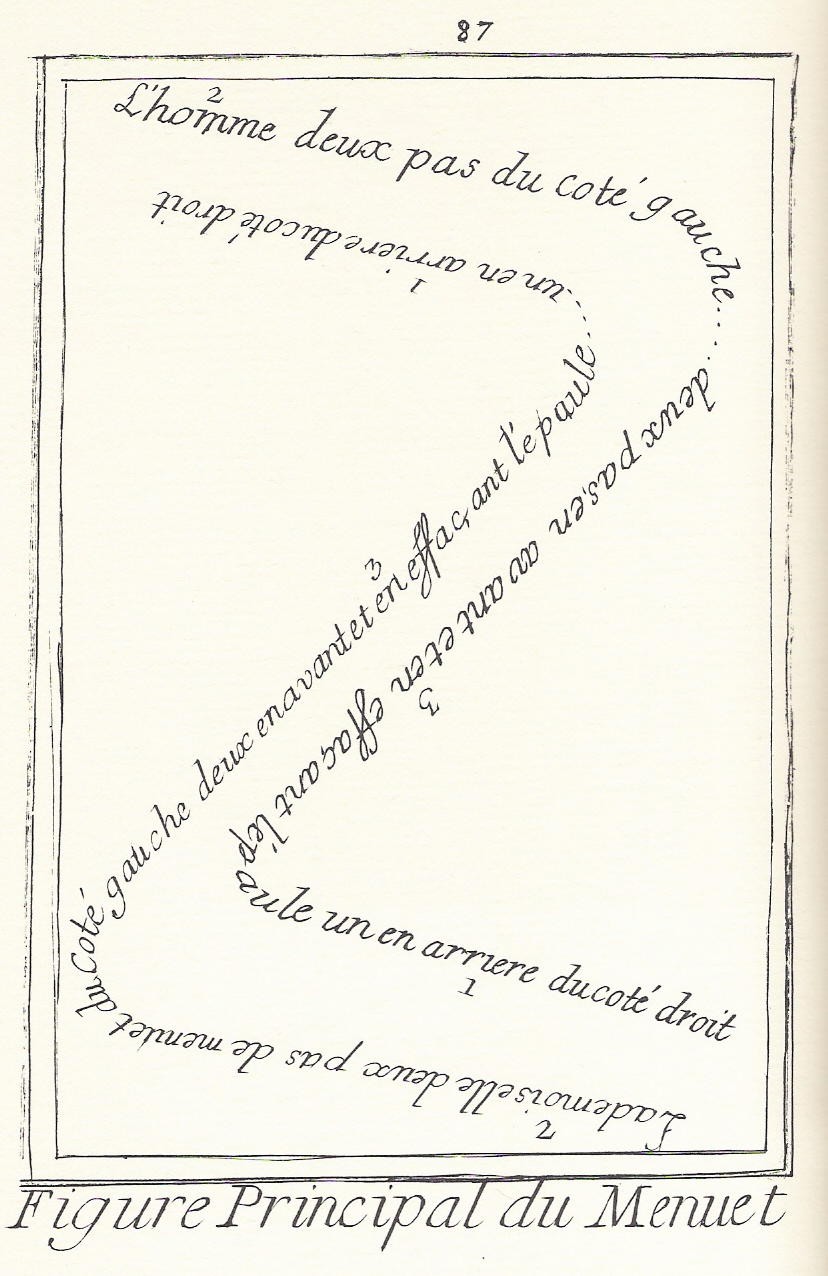 87
2
L'homme deux pas du coté gauche.... deux pas,en avant et en effaçant l'épaule un en arriere du coté droit
3
1
Lademoiselle deux pas de menuet du coté gauche deux en avant et en effaçant l'épaule..... un en arriere du coté droit
2
3
1
Figure Principal du Menuet